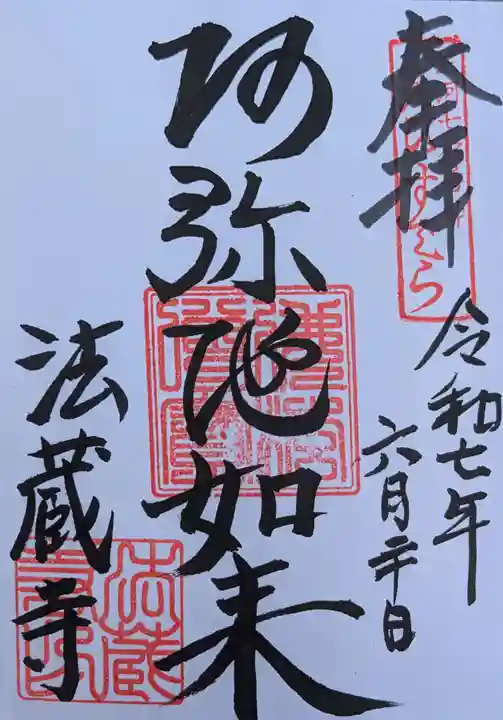 奉拝
令和七年
六月二十日
阿弥陀如来
法蔵寺
法蔵